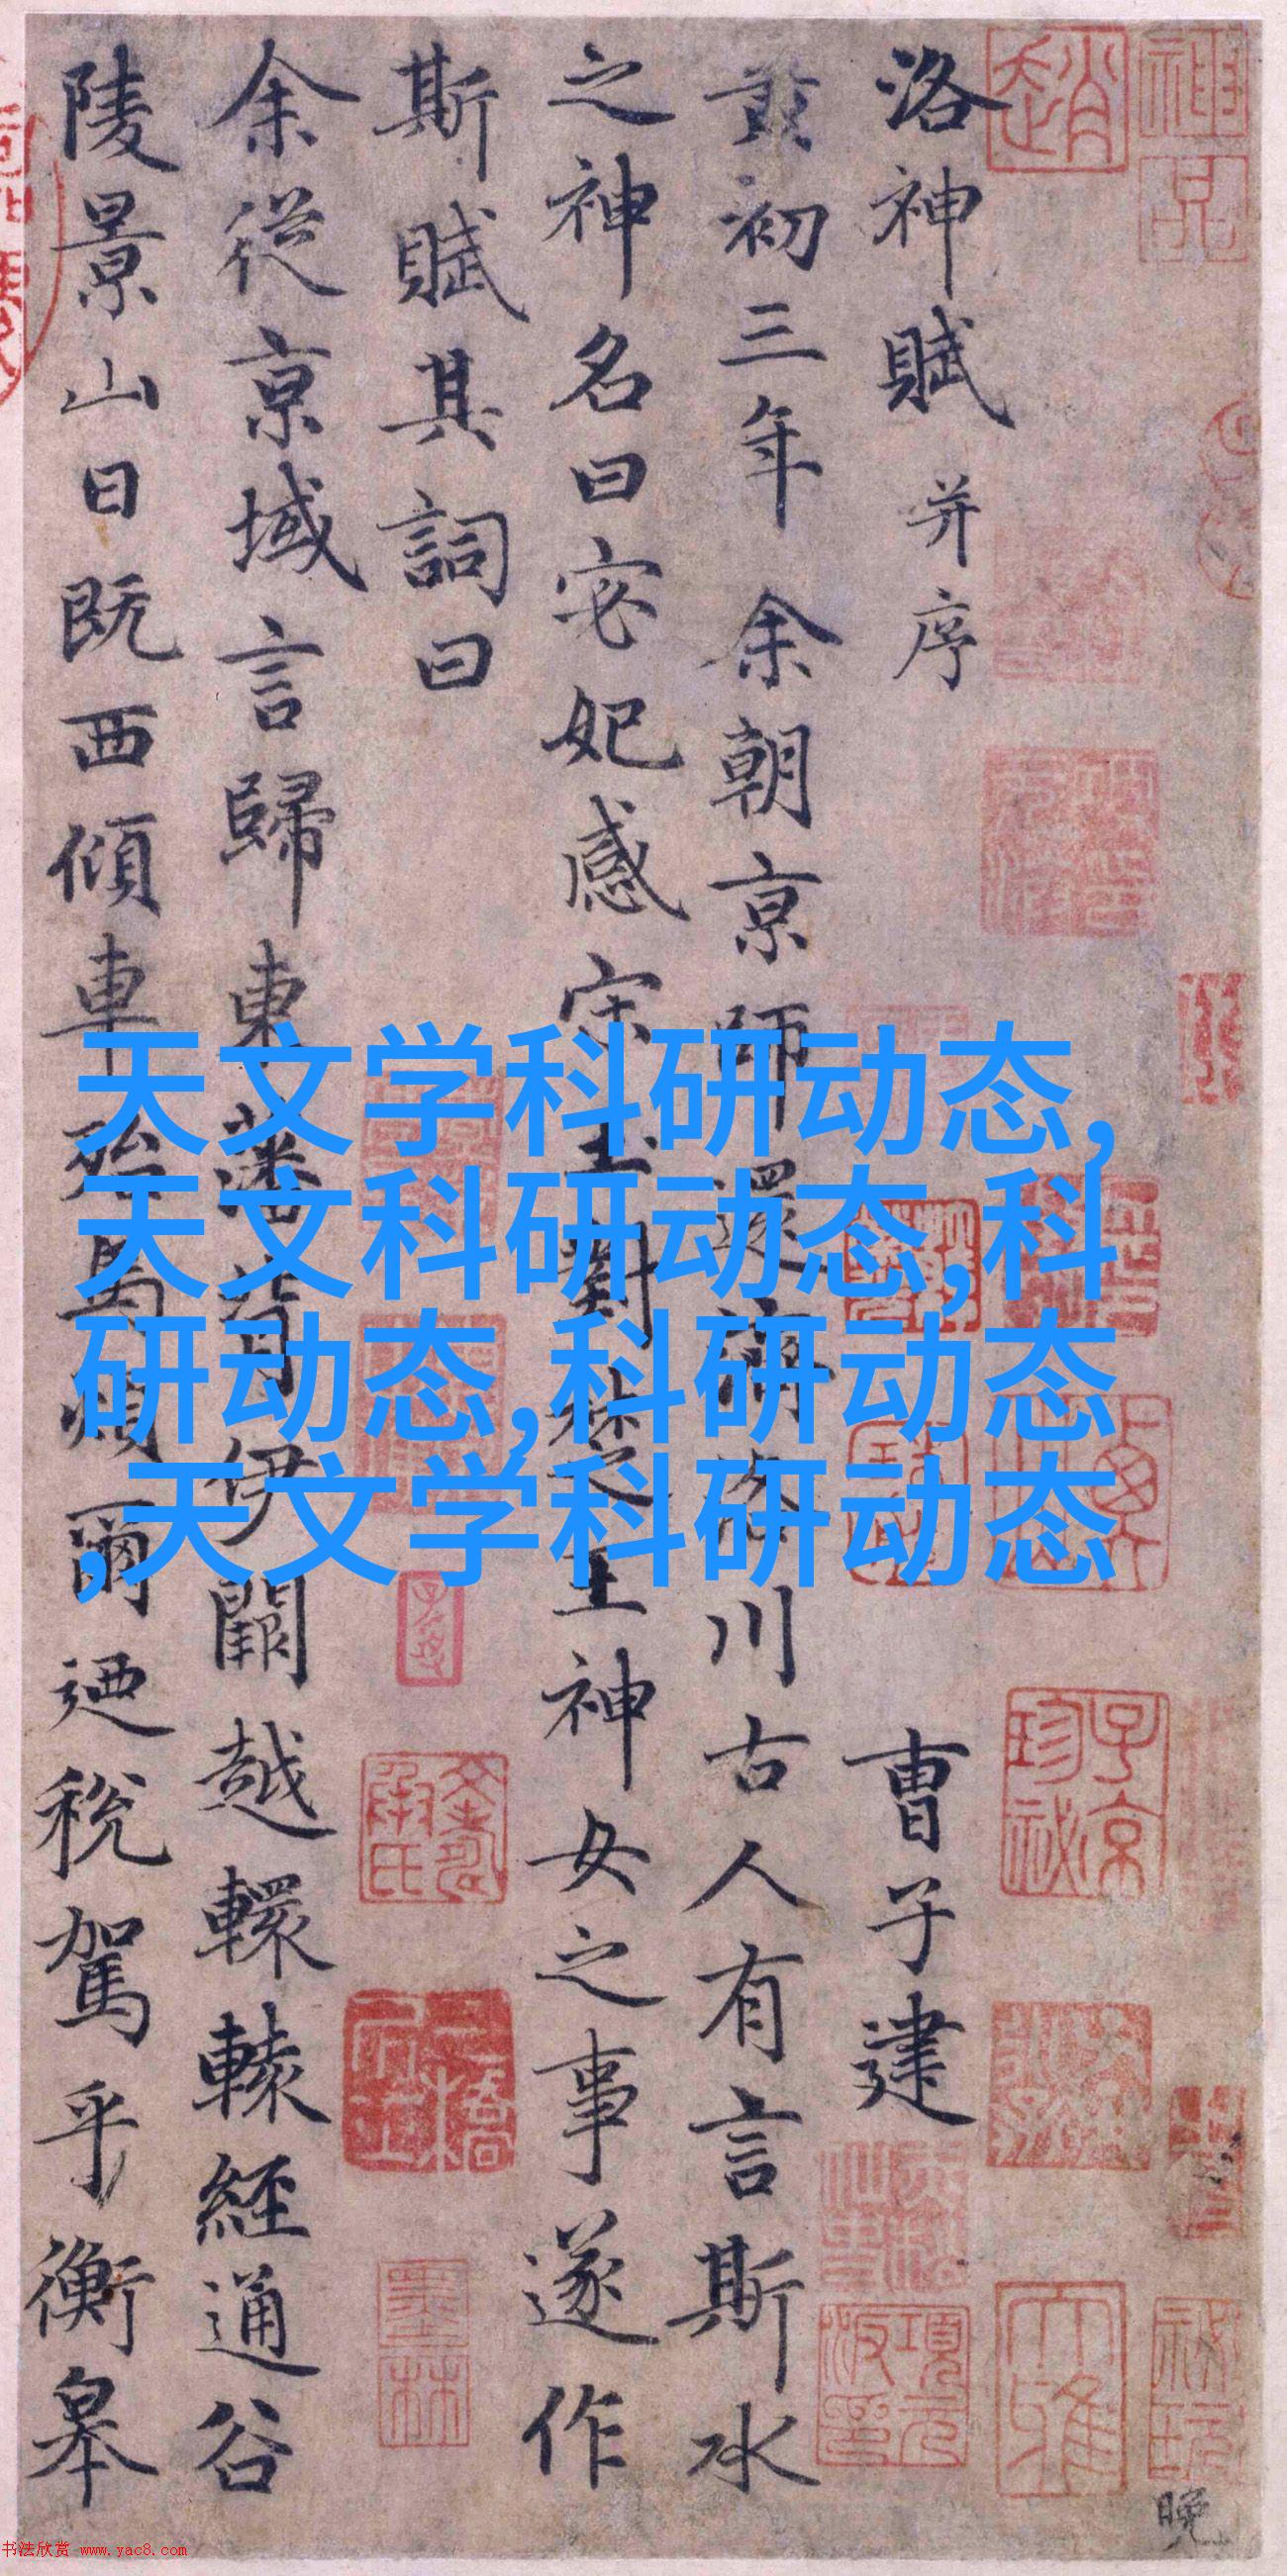 洛神賦 并序 曹子建
黄初三年余朝京師還濟洛川古人有言斯水
之神名曰宓妃感宋玉對楚王神女之事遂作
斯賦其詞曰
余從京域言歸東藩背伊闕越轘轅經通谷
陵景山日既西傾車殆馬煩爾迺稅駕乎衡皋
天文学科研动态,
天文科研动态,科
研动态,科研动态
,天文学科研动态
趙
子京珍祕
項元汴印
墨林
晚
书法欣赏 www.yac8.com